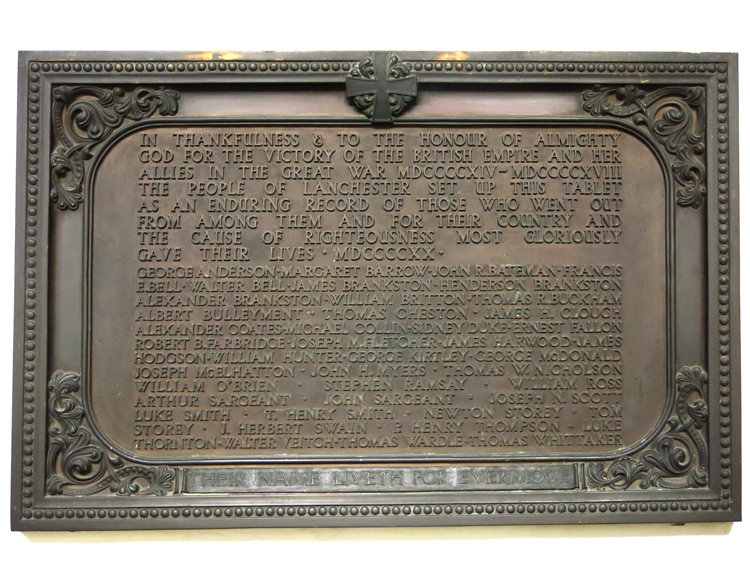 IN THANKFULNESS & TO THE HONOUR OF ALMIGHTY
GOD FOR THE VICTORY OF THE BRITISH EMPIRE AND HER
ALLIES IN THE GREAT WAR MDCCCCXIV-MDCCCCXVIII
THE PEOPLE OF LANCHESTER SET UP THIS TABLET
AS AN ENDURING RECORD OF THOSE WHO WENT OUT
FROM AMONG THEM AND FOR THEIR COUNTRY AND
THE CAUSE OF RIGHTEOUSNESS MOST GLORIOUSLY
GAVE THEIR LIVES · MDCCCCXX ·
GEORGE ANDERSON · MARGARET BARROW · JOHN R. BATEMAN · FRANCIS
E. BELL · WALTER BELL · JAMES BRANKSTON · HENDERSON BRANKSTON
ALEXANDER BRANKSTON · WILLIAM BRITTON · THOMAS R. BUCKHAM
ALBERT BULLEYMENT · THOMAS CHESTON · JAMES H. CLOUGH
ALEXANDER COATES · MICHAEL COLLIN · SIDNEY DUKE · ERNEST FALLON
ROBERT B. FARBRIDGE · JOSEPH M. FLETCHER · JAMES HARWOOD · JAMES
HODGSON · WILLIAM HUNTER · GEORGE KIRTLEY · GEORGE McDONALD
JOSEPH McELHATTON · JOHN H. MYERS · THOMAS W. NICHOLSON
WILLIAM O'BRIEN · STEPHEN RAMSAY · WILLIAM ROSS
ARTHUR SARGEANT · JOHN SARGEANT · JOSEPH N. SCOTT
LUKE SMITH · T. HENRY SMITH · NEWTON STOREY · TOM
STOREY · J. HERBERT SWAIN · P. HENRY THOMPSON · LUKE
THORNTON · WALTER VEITCH · THOMAS WARDLE · THOMAS WHITTAKER
THEIR NAME LIVETH FOR EVERMORE